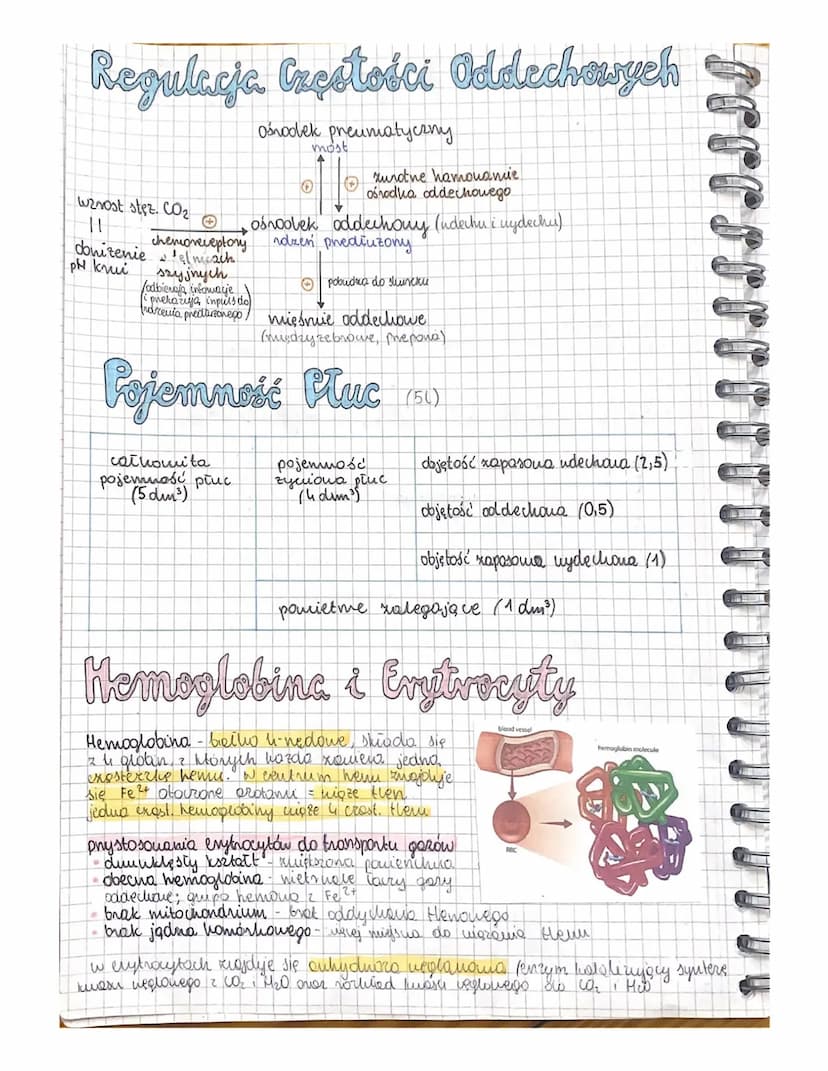 Regulacja Częstości Oddechowych
ośrodek pneumatyczny
most
zwrotne hamowanie
ośrodka oddechowego
wzrost stęż. CO₂
||
obniżenie
pH krwi
chemoreceptory
w tętnicach
szyjnych
(odbierają informacje
i przekazują impuls do
rdzenia przedłużonego)
ośrodek oddechowy (wdechu i wydechu)
rdzeń przedłużony
pobudka do skurczu
mięśnie oddechowe
(międzyżebrowe, przepona)
Pojemność Płuc (5l)
całkowita
pojemność płuc
(5 dm³)
pojemność
życiowa płuc
(4 dm³)
objętość zapasowa wdechowa (2,5)
objętość oddechowa (0,5)
objętość zapasowa wydechowa (1)
powietrze zalegające (1 dm³)
Hemoglobina i Erytrocyty
Hemoglobina - białko 4-rzędowe, składa się
z 4 globin, z których każda zawiera jedną
cząsteczkę hemu. W centrum hemu znajduje
się Fe²⁺ otoczone azotami = wiąże tlen
jedna cząst. hemoglobiny wiąże 4 cząst. tlenu
blood vessel
hemoglobin molecule
RBC
przystosowania erytrocytów do transportu gazów
• dwuwklęsły kształt - zwiększona powierzchnia
• obecna hemoglobina - nietrwale łączy gazy
oddechowe; grupa hemowa z Fe²⁺
• brak mitochondrium - brak oddychania tlenowego
• brak jądra komórkowego - więcej miejsca do wiązania tlenu
w erytrocytach znajduje się anhydraza węglanowa (enzym katalizujący syntezę
kwasu węglowego z CO₂ i H₂O oraz rozkład kwasu węglowego do CO₂ i H₂O